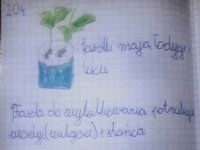 204.
- fasolki mają łodygę i
liście
Fasola do wykiełkowania potrzebuje
wody (wilgoci) i słońca